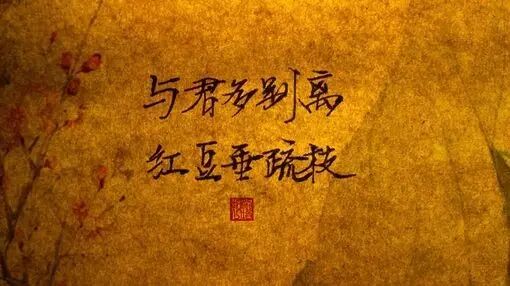 与君多别离
红豆垂疏枝